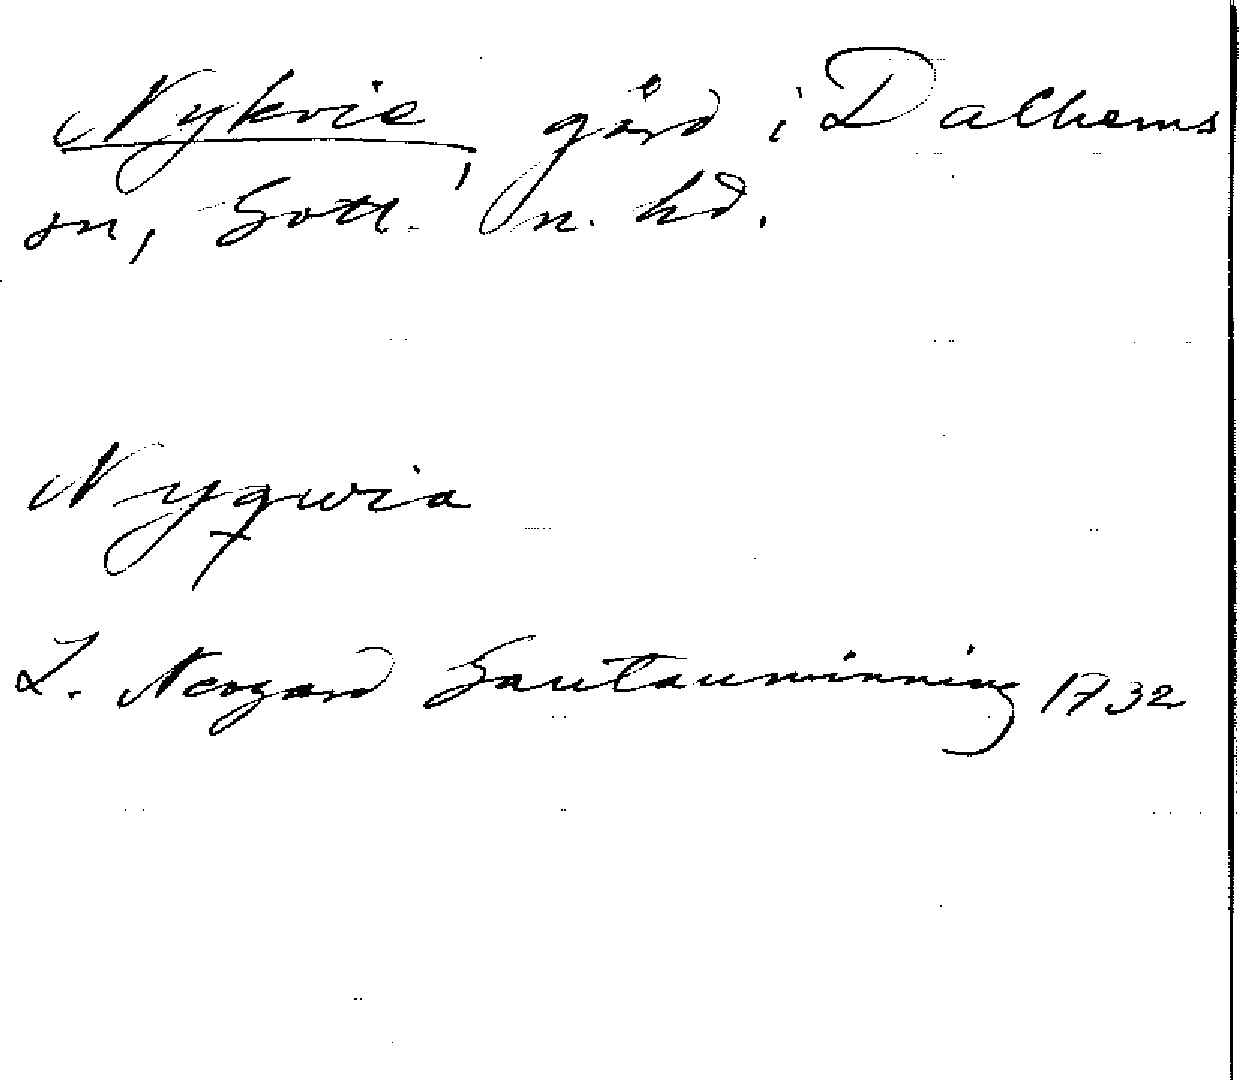 Nykvie, gård i Dalhems
sn, Gotl. n. hd.
Nyqwia
L. Neogard Gautauminning 1732